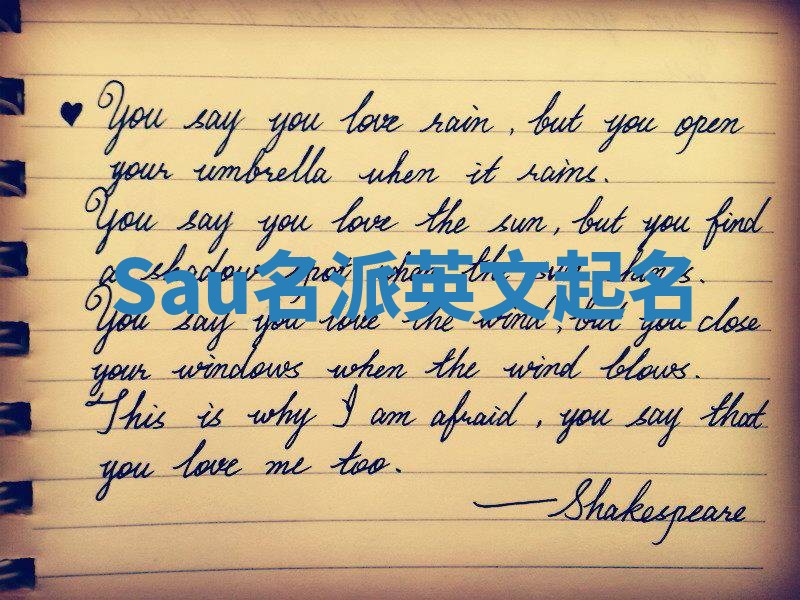 ♥ You say you love rain, but you open
your umbrella when it rains.
You say you love the sun, but you find
a shadow spot when the sun shines.
Sau名派英文起名
You say you love the wind, but you close
your windows when the wind blows.
This is why I am afraid, you say that
you love me too.
—Shakespeare